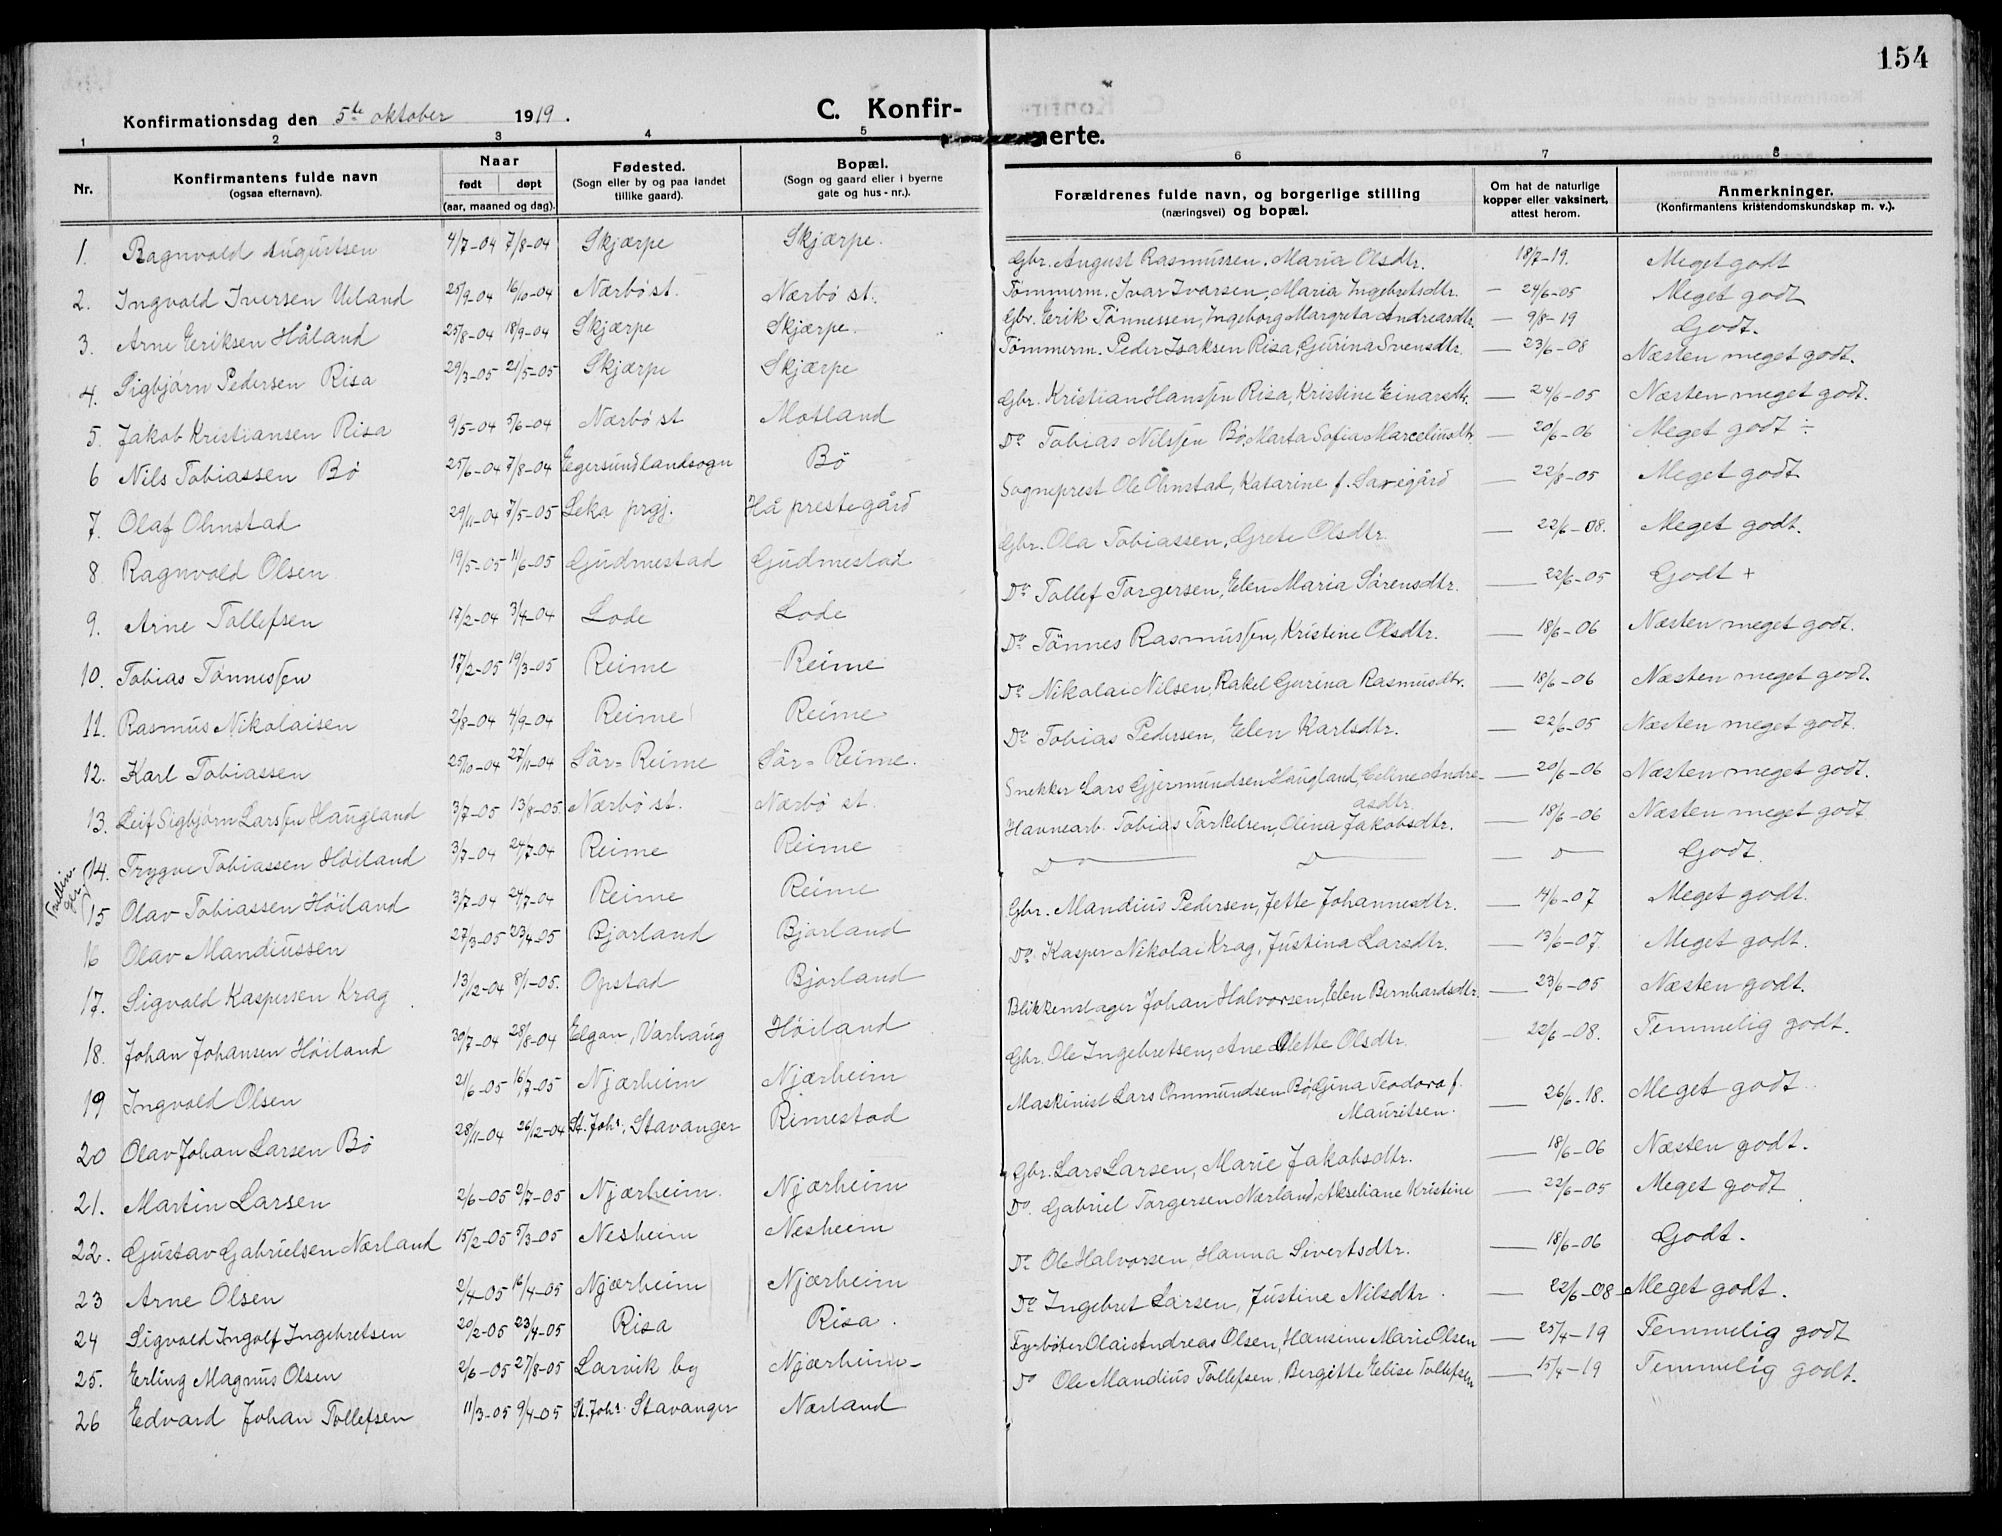 154
Konfirmationsdag den 5te oktober 1919.
C. Konfirmerte.
1 2 3 4 5 6 7 8
Nr. Konfirmantens fulde navn (ogsaa efternavn). Naar født døpt (aar, maaned og dag). Fødested. (Sogn eller by og paa landet tillike gaard). Bopæl. (Sogn og gaard eller i byerne gate og hus-nr.). Forældrenes fulde navn, og borgerlige stilling (næringsvei) og bopæl. Om hat de naturlige kopper eller vaksinert, attest herom. Anmerkninger. (Konfirmantens kristendomskundskap m. v.).
1. Ragnvald Augustsen 4/7-04 7/8-04 Skjærpe Skjærpe. Gbr. August Rasmussen. Maria Olsdtr. 18/7-19. Meget godt
2. Ingvald Iversen Ueland 25/9-04 16/10-04 Nærbö st. Nærbö st. Tömmerm. Ivar Ivarsen, Maria Ingebretsdtr. — 24/6-05 Meget godt
3. Arne Eriksen Håland 25/8-04 18/9-04 Skjærpe Skjærpe. Gbr. Erik Tönnessen, Ingeborg Margreta Andreasdtr. — 9/8-19 Godt.
4. Sigbjörn Pedersen Risa 29/3-05 21/5-05 Skjærpe Skjærpe Tömmerm. Peder Isaksen Risa, Gurina Svensdtr. — 23/6-08 Næsten meget godt.
5. Jakob Kristiansen Risa 9/5-04 5/6-04 Nærbö st Motland Gbr. Kristian Hanssen Risa, Kristine Einarsdtr. — 24/6-05 Næsten meget godt.
6 Nils Tobiassen Bö 25/6-04 7/8-04 Egersund landsogn Bö Do Tobias Nilssen Bö, Marta Sofia Marceliusdtr — 20/6-06 Meget godt ÷
7. Olaf Olmstad 29/11-04 7/5-05 Leka prgj. Hå prestegård Sogneprest Ole Olmstad, Katarine f. — 22/8-05 Meget godt
8. Ragnvald Olsen 19/5-05 11/6-05 Gudmestad Gudmestad Gbr. Ola Tobiassen, Grete Olsdtr. — 22/6-08. Meget godt.
9. Arne Tollefsen 17/2-04 3/4-04 Lode Lode Do Tollef Torgersen, Elen Maria Sörensdtr. — 22/6-05 Godt +
10. Tobias Tönnessen 17/2-05 19/3-05 Reime Reime Do Tönnes Rasmussen, Kristine Olsdtr. — 18/6-06 Næsten meget godt.
11. Rasmus Nikolaisen 2/8-04 4/9-04 Reime Reime Do Nikolai Nilsen, Rakel Gurina Rasmusdtr. — 18/6-06 Næsten meget godt.
12. Karl Tobiassen 25/10-04 27/11-04 Sör-Reime Sör-Reime. Do Tobias Pedersen, Elen Karlsdtr. — 22/6-05 Næsten meget godt.
13. Leif Sigbjörn Larssen Haugland 3/7-05 13/8-05 Nærbö st. Nærbö st. Snekker Lars Gjermundsen Haugland, Celine Andreasdtr. — 20/6-06 Næsten meget godt.
Tvillinger
14. Trygve Tobiassen Höiland 3/7-04 24/7-04 Reime Reime Havnearb. Tobias Torkelsen, Olina Jakobsdtr. — 18/6-06 Næsten meget godt
15 Olav Tobiassen Höiland 3/7-04 24/7-04 Reime Reime Do — D — — D — Godt.
16 Olav Mandiussen 27/3-05 23/4-05 Bjorland Bjorland Gbr. Mandius Pedersen, Jette Johannesdtr. — 14/6-07 Meget godt.
17. Sigvald Kaspersen Krag 13/12-04 8/1-05. Opstad Bjorland Do Kasper Nikolai Krag, Justina Larsdtr. — 13/6-07. Meget godt.
18. Johan Johansen Höiland 30/7-04 28/8-04 Elgan, Varhaug Höiland Blikkenslager Johan Halvorsen, Elen Bernhardsdtr. — 23/6-05 Næsten godt.
19 Ingvald Olsen 21/6-05 16/7-05 Njærheim Njærheim Gbr. Ole Ingebretsen, Ane Olette Olsdtr. — 22/6-08. Temmelig godt.
20 Olav Johan Larsen Bö 28/11-04 26/12-04 St. Johs. Stavanger Rimestad Maskinist Lars Ommundsen Bö, Gina Teodora f. Mauritsen. — 26/6-18. Meget godt.
21. Martin Larsen 2/6-05 2/7-05 Njærheim. Njærheim Gbr. Lars Larsen, Marie Jakobsdtr. — 18/6-06 Næsten godt.
22. Gustav Gabrielsen Nærland 15/2-05 5/3-05 Nesheim Nesheim Do. Gabriel Torgersen Nærland, Akseliane Kristine — 22/6-05 Meget godt
23 Arne Olsen 2/4-05 16/4-05 Njærheim Njærheim Do Ole Halvorsen, Hanna Sivertsdtr. — 18/6-06 Godt.
24 Sigvald Ingolf Ingebretsen 20/2-05 23/4-05 Risa Risa. Do Ingebret Larsen, Justine Nilsdtr. — 22/6-08 Meget godt.
25. Erling Magnus Olsen 2/6-05 27/8-05 Larvik by Njærheim Fyrbøter Olai Andreas Olsen, Hansine Marie Olsen — 25/4-19 Temmelig godt
26 Edvard Johan Tollefsen 11/3-05 9/4-05 St. Johs. Stavanger Nærland Do Ole Mandius Tollefsen, Bergitte Elise Tollefsen — 15/4-19 Temmelig godt.